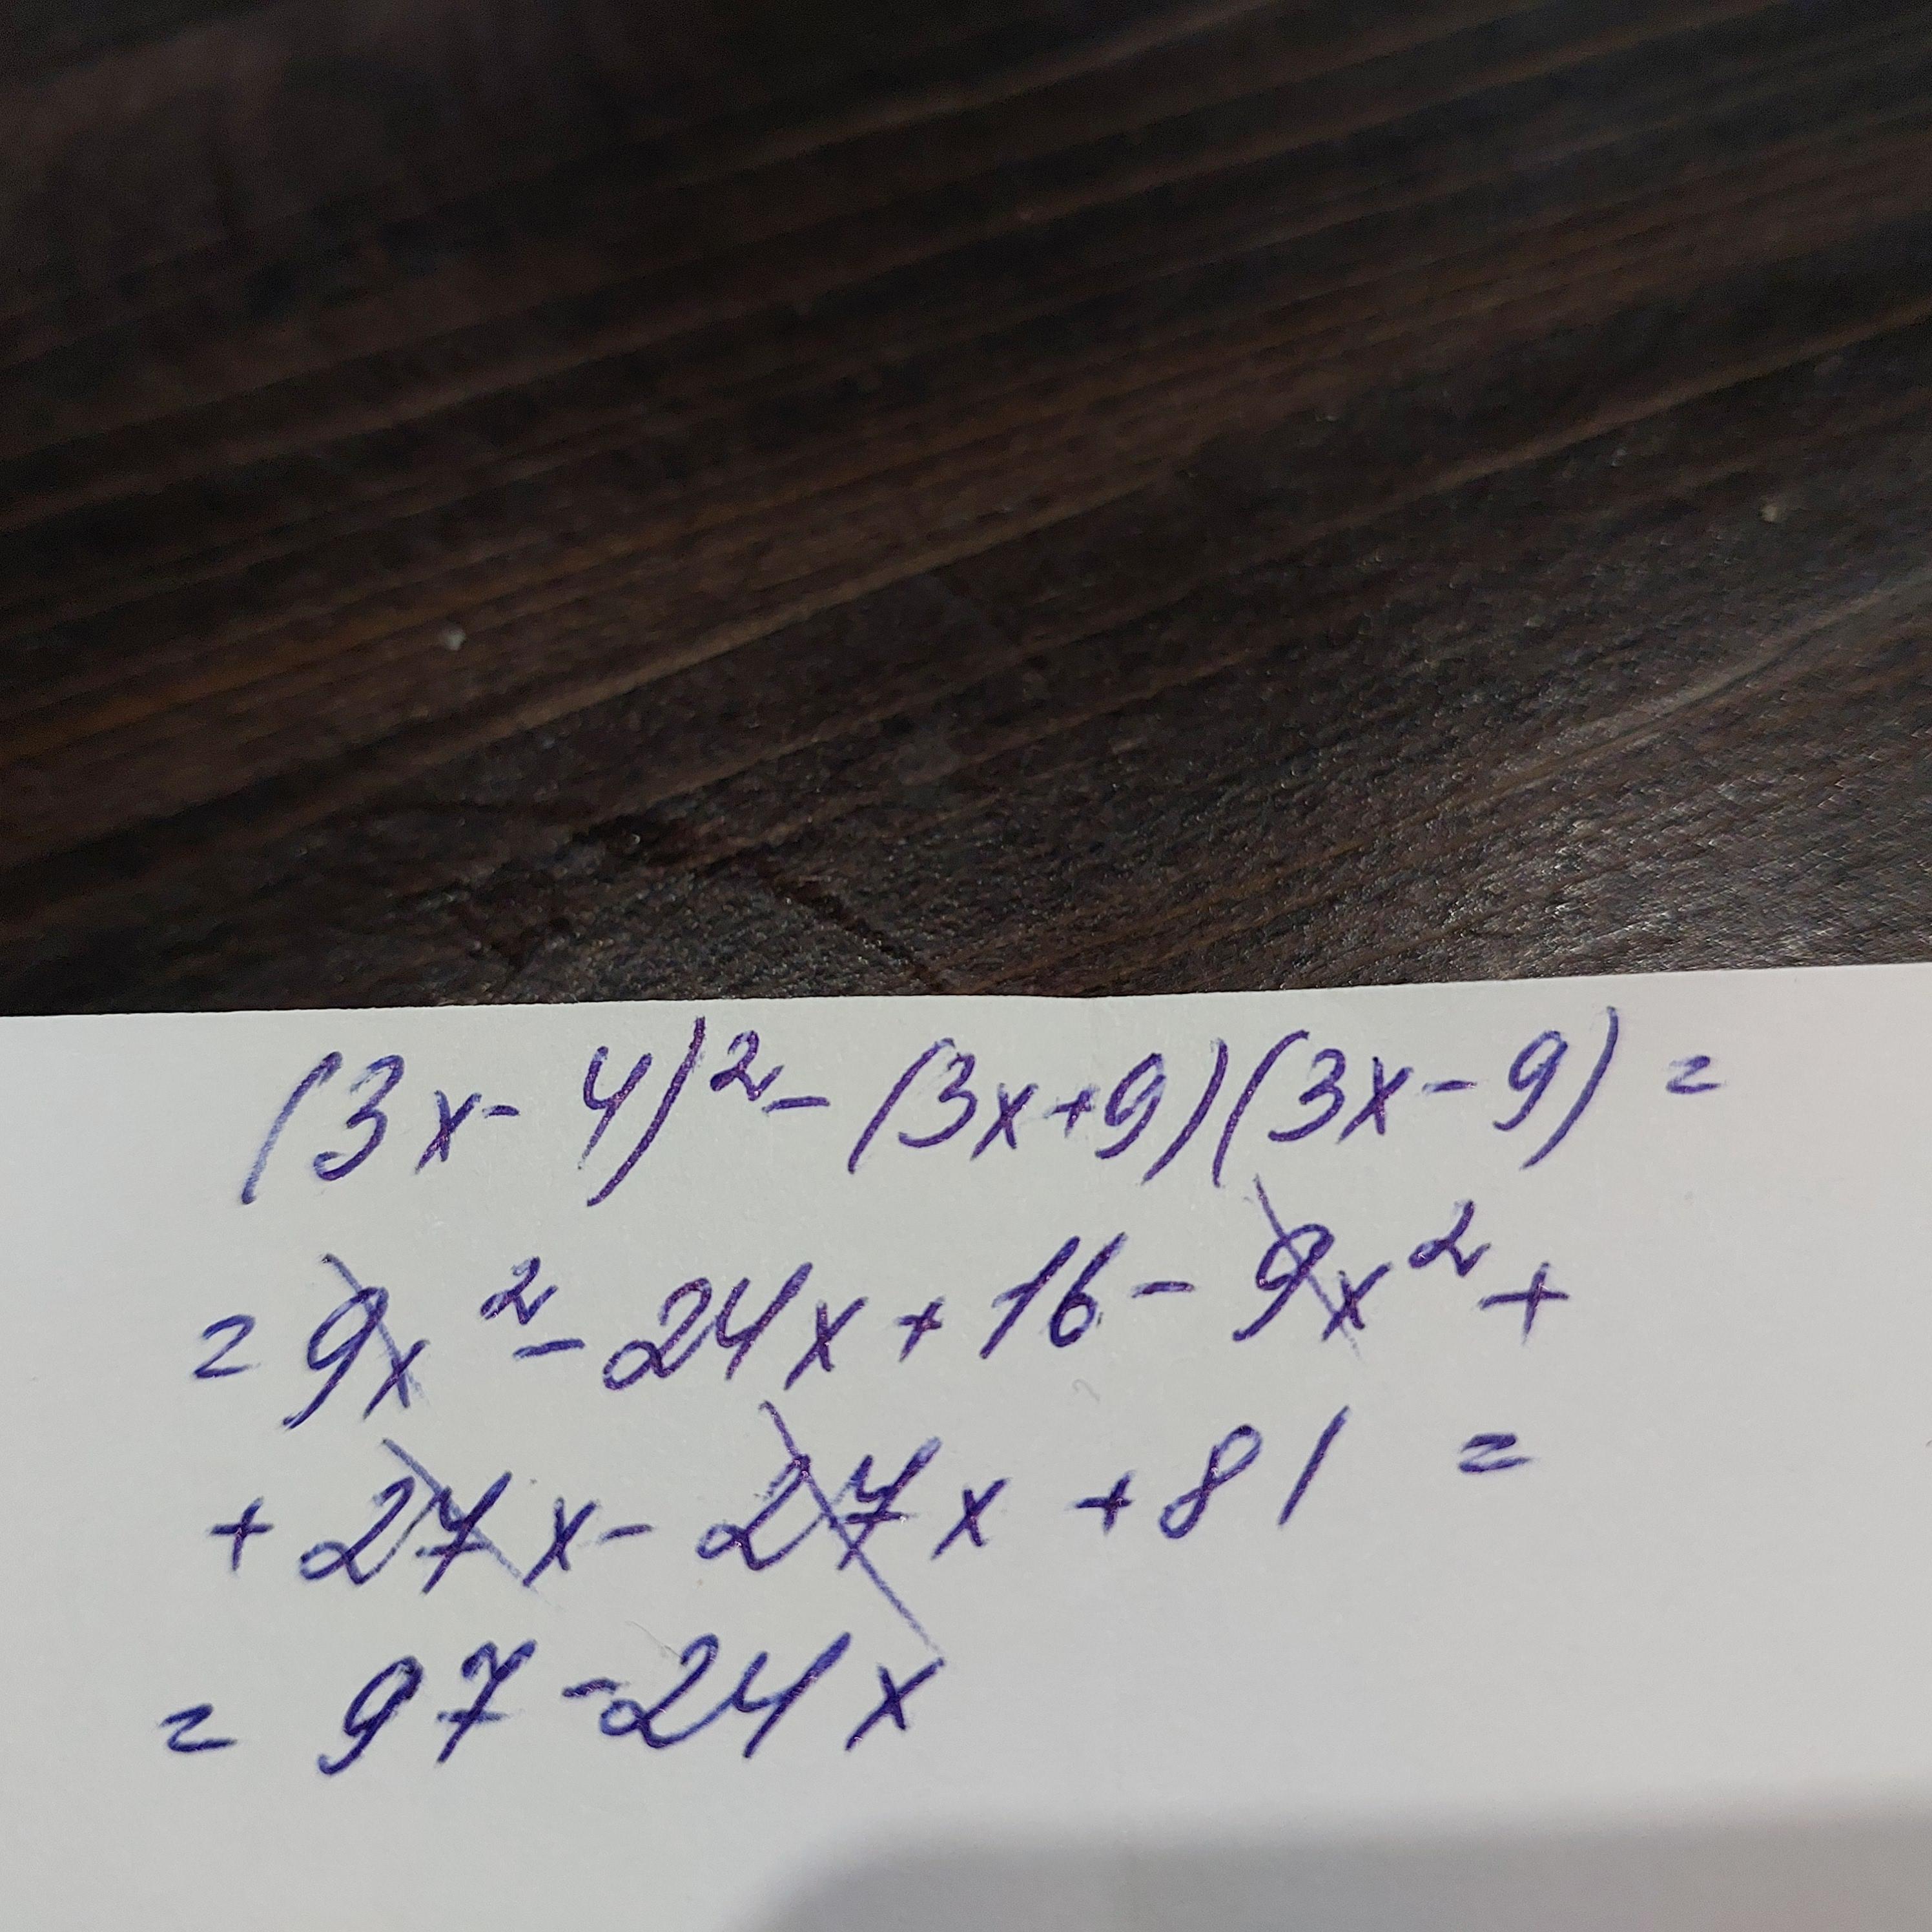 (3x - 4)² - (3x+9)(3x - 9) =
= 9x² - 24x + 16 - 9x² +
+ 27x - 27x + 81 =
= 97 - 24x